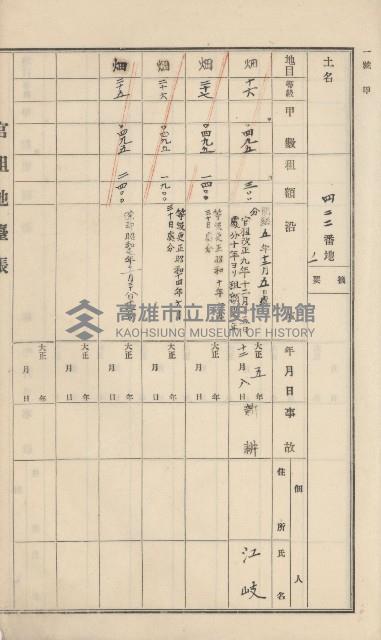 一號 甲
土名
四二二番地ノ一
摘要
地目 等級 甲數 租額 沿
年月日 事故
佃人
住所 氏名
畑 十六 〇四九五 三〇〇
五年十二月五日
官租改正九年十二月
處分十年ヨリ租額
大正五年十二月八日 新耕
江岐
畑 二十七 〇四九五 一四〇
等級更正昭和十年
三十日處分
大正 年 月 日
畑 二十六 〇四九五 一九〇
等級更正昭和十四年
三十日處分
大正 年 月 日
畑 二十五 〇四九五 二四〇
大正 年 月 日
大正 年 月 日
官租地臺帳
高雄市立歷史博物館
KAOHSIUNG MUSEUM OF HISTORY